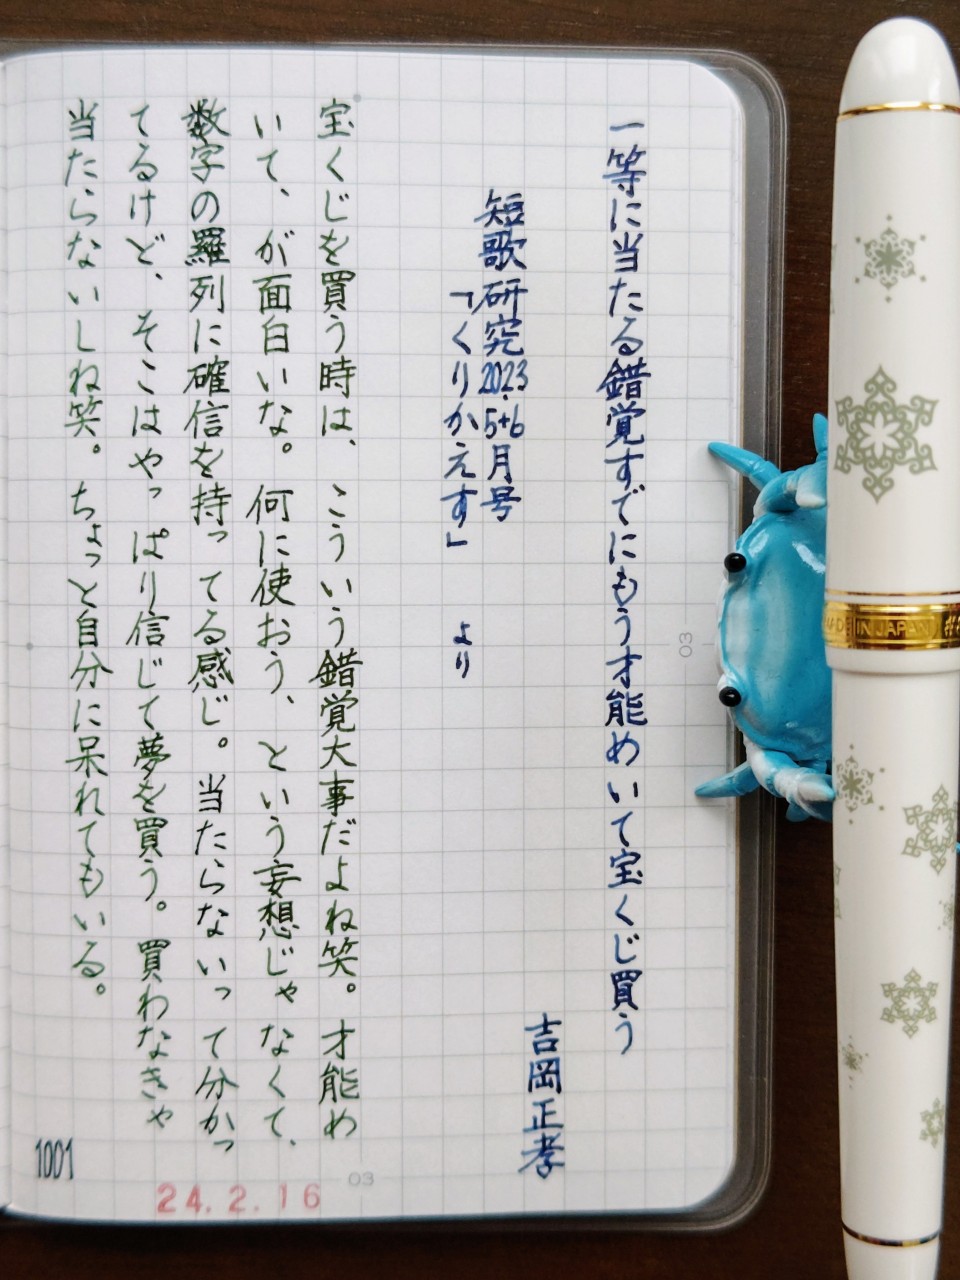 一等に当たる錯覚すでにもう才能めいて宝くじ買う
吉岡正孝
短歌研究2023.5+6月号
「くりかえす」 より
宝くじを買う時は、こういう錯覚大事だよね笑。才能め
いて、が面白いな。何に使おう、という妄想じゃなくて、
数字の羅列に確信を持ってる感じ。当たらないって分かっ
てるけど、そこはやっぱり信じて夢を買う。買わなきゃ
当たらないしね笑。ちょっと自分に呆れてもいる。
1001
24.2.16
03
03
MADE IN JAPAN